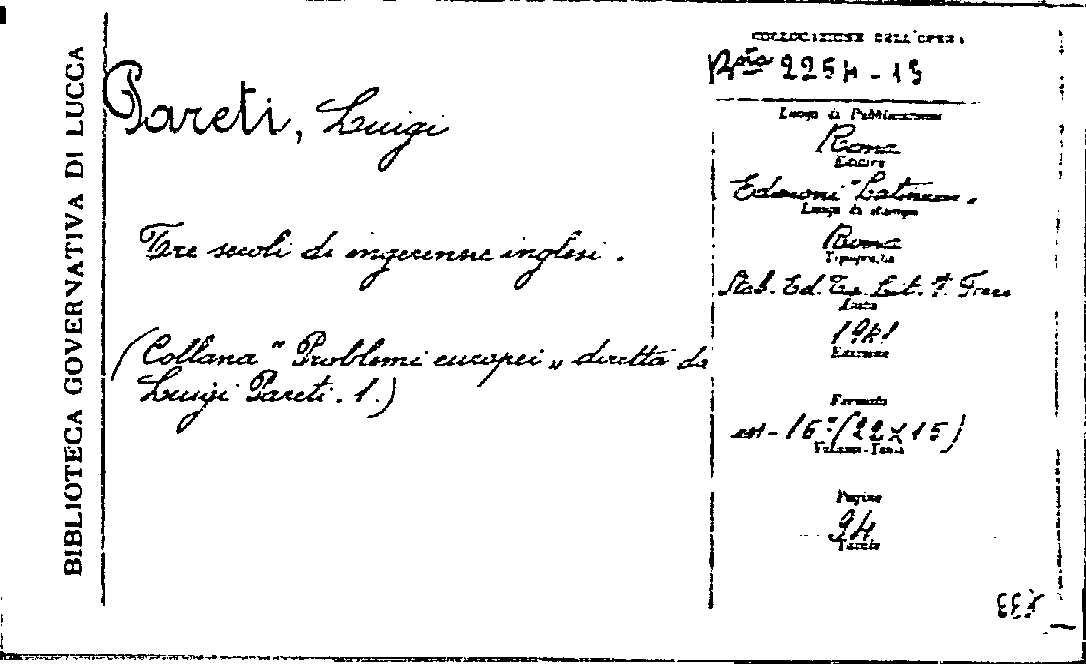 BIBLIOTECA GOVERNATIVA DI LUCCA
Pareti, Luigi
Tre secoli di ingerenze inglesi.
(Collana "Problemi europei„ diretta da
Luigi Pareti. 1.)
COLLOCAZIONE DELL'OPERA
Bta 225H-19
Luogo di Pubblicazione
Roma
Editore
Edizioni "Latium„.
Luogo di stampa
Roma
Tipografia
Stab. Ed. Tip. Lit. F.
Data
1941
Edizione
Formato
in-16° (22x15)
Volume-Tomo
Pagine
94
Tavole